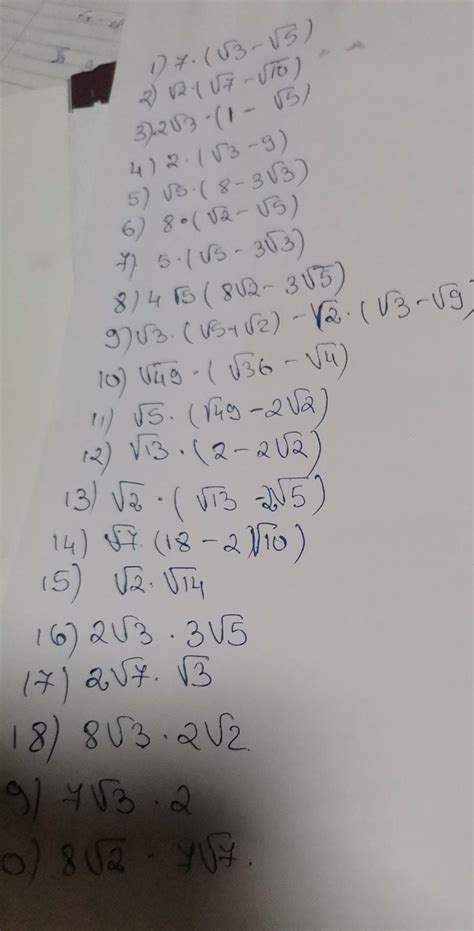 1) 7·(√3-√5)
2) √2·(√7-√10)
3) 2√3·(1-√5)
4) 2·(√3-9)
5) √3·(8-3√3)
6) 8·(√2-√5)
7) 5·(√5-3√3)
8) 4√5(8√2-3√5)
9) √3·(√5+√2)-√2·(√3-√9)
10) √49·(√36-√4)
11) √5·(√49-2√2)
12) √13·(2-2√2)
13) √2·(√13-2√5)
14) √7·(18-2√10)
15) √2·√14
16) 2√3·3√5
17) 2√7·√3
18) 8√3·2√2
9) 7√3·2
0) 8√2·7√7.